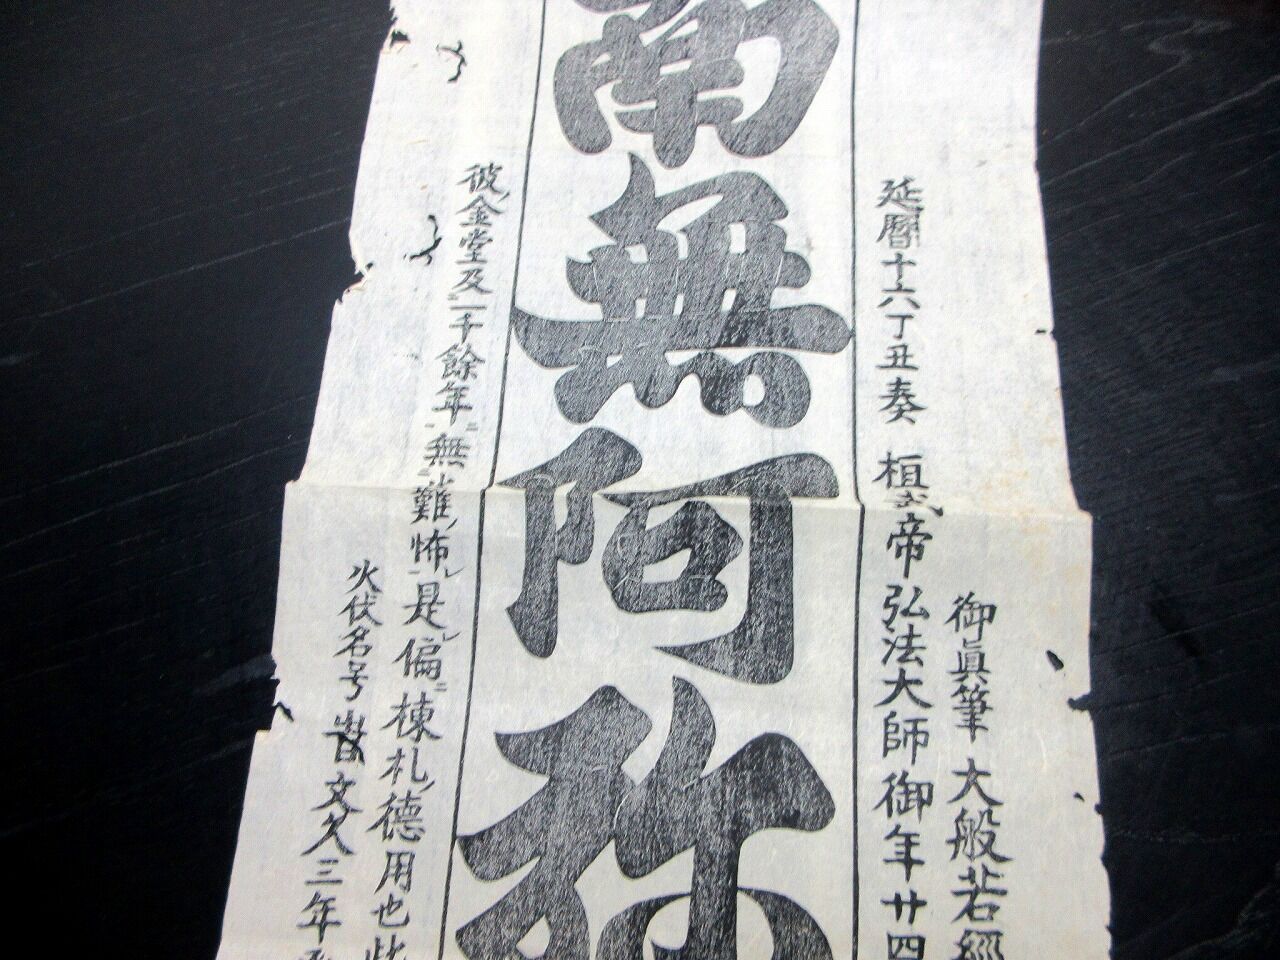 御眞筆 大般若經
延暦十六丁丑奏 桓武帝弘法大師御年廿四
南無阿弥
彼金堂及一千餘年無難怖是偏棟札徳用也此
火伏名号 文久三年